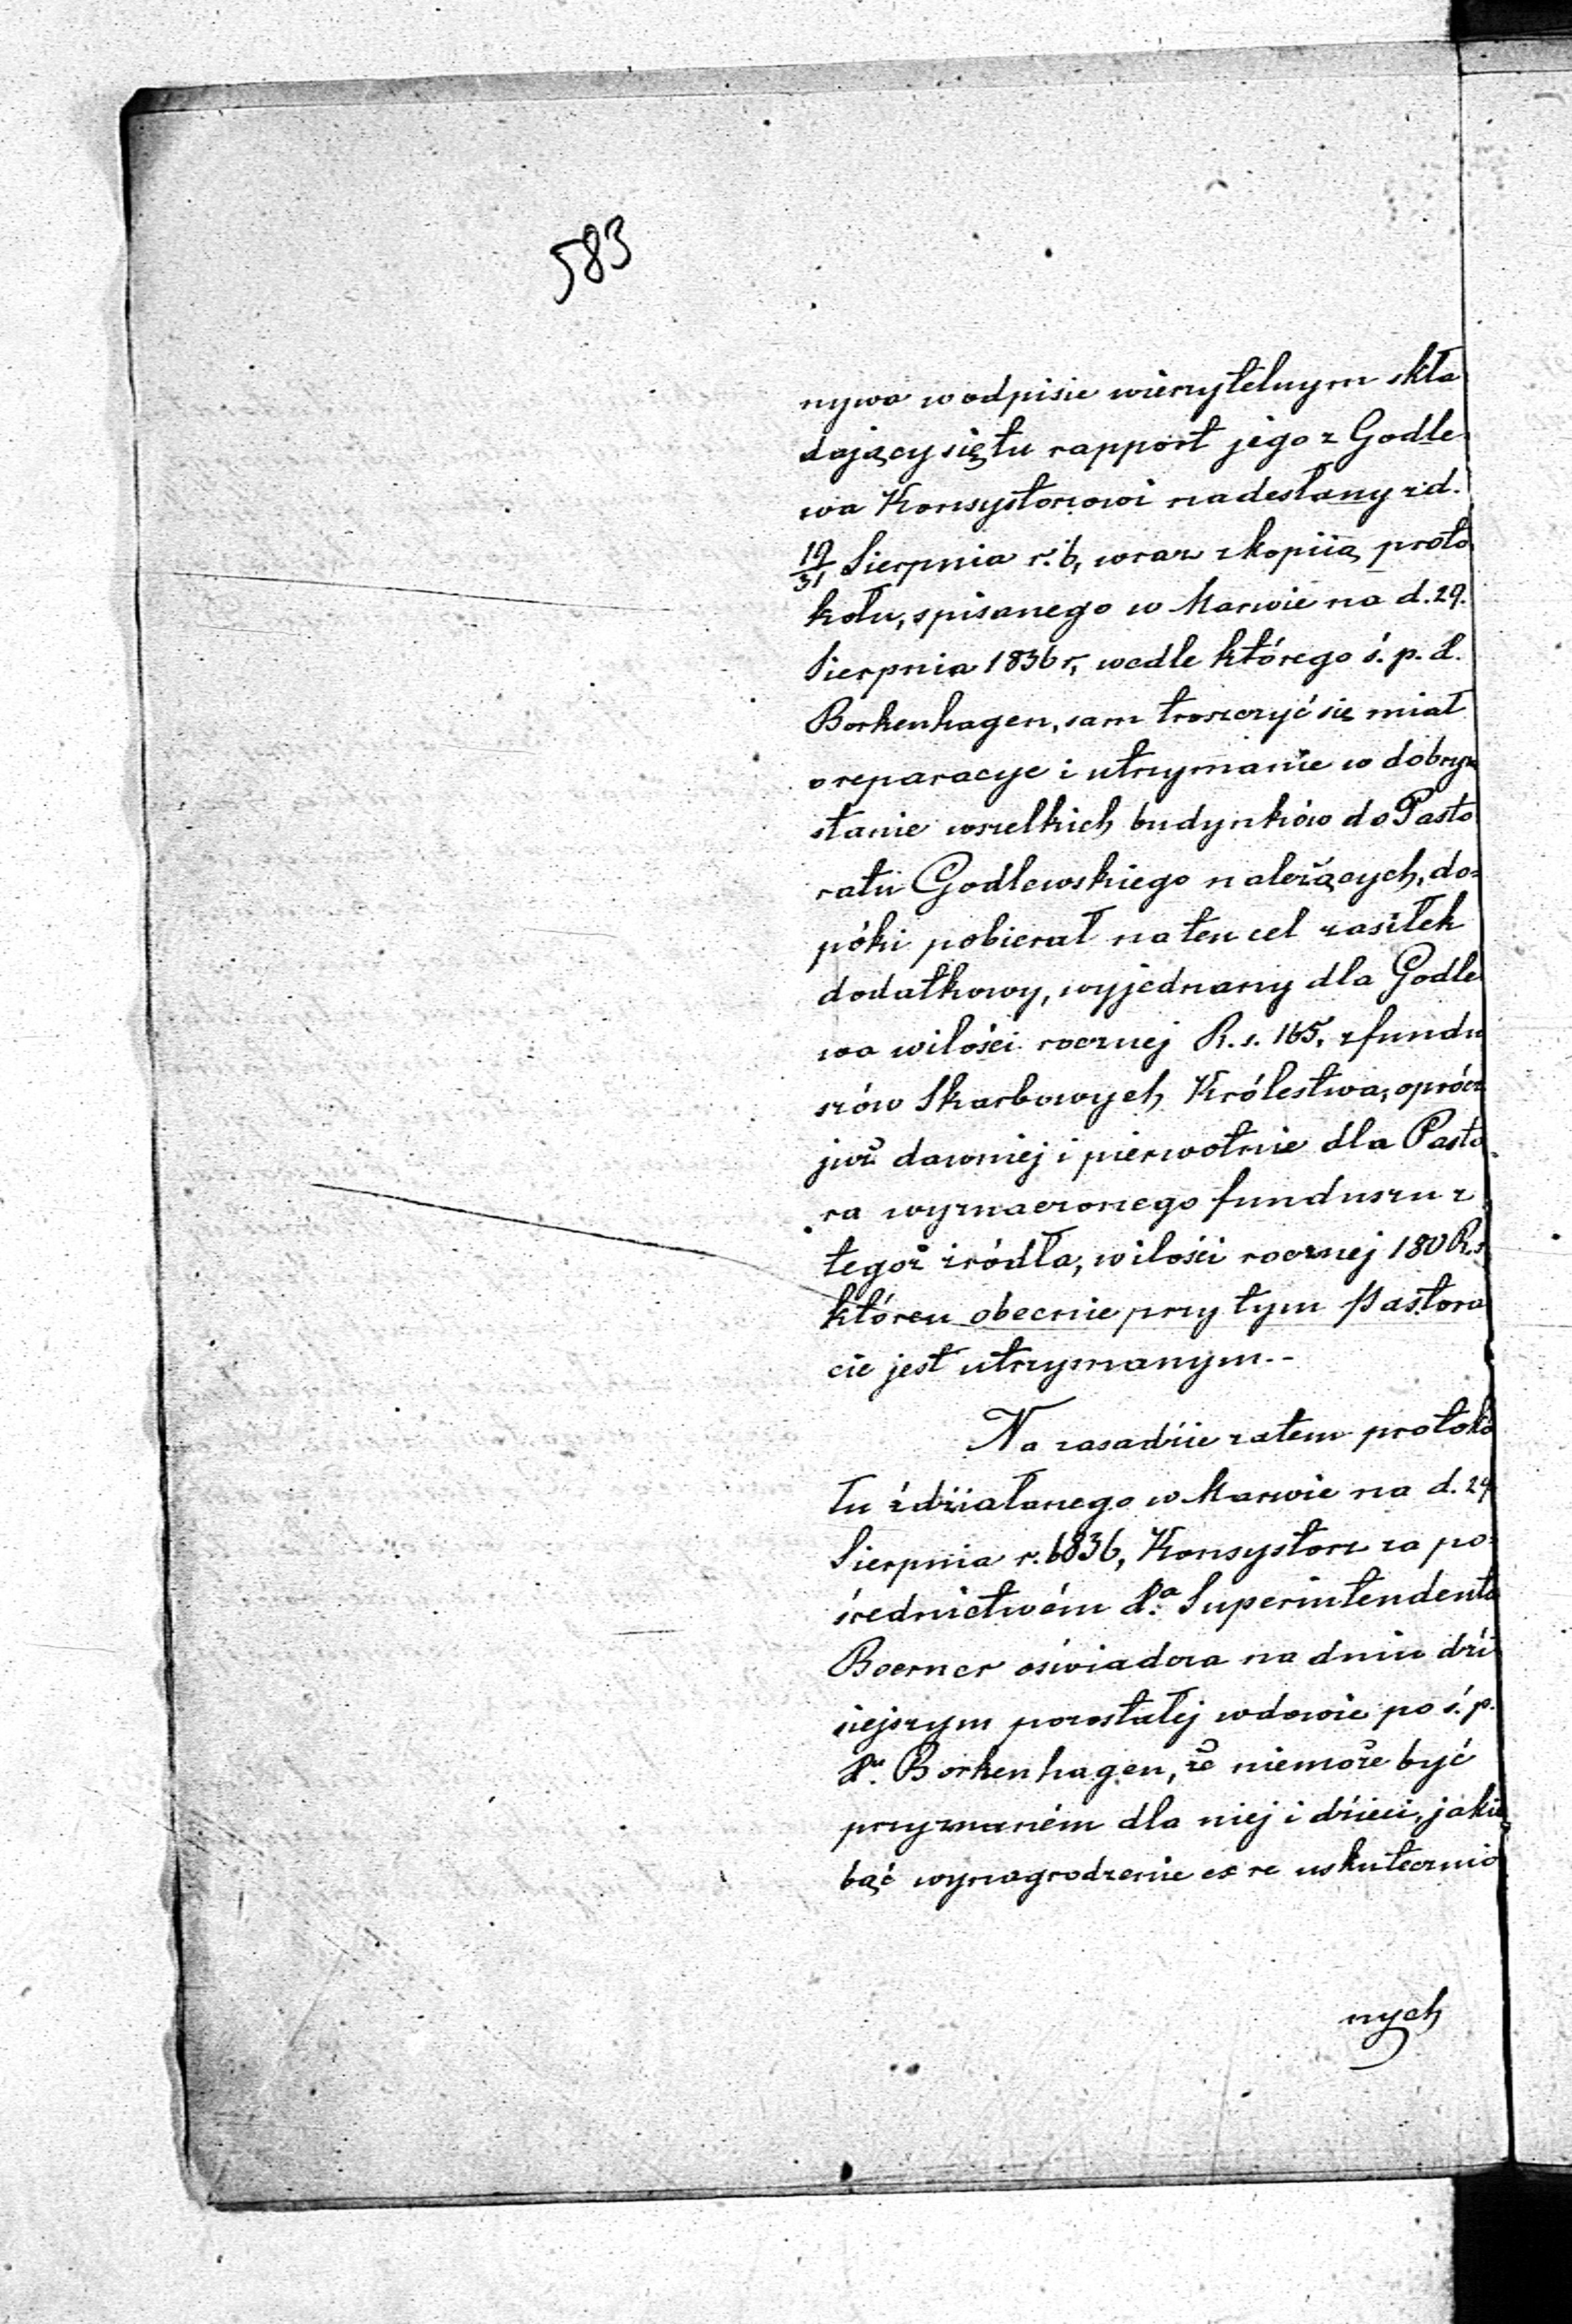 583
nywa w odpisie wierzytelnym skła
dający się tu rapport jego z Godle-
wa Konsystorzowi nadesłany z d.
19/31 Sierpnia r. b, wraz z kopiią proto
kołu, spisanego w Marwie na d. 29.
Sierpnia 1836 r, wedle którego ś. p. d.
Borkenhagen, sam troszczyć się miał
o reparacye i utrzymanie w dobrym
stanie wszelkich budynków do Pasto
ratu Godlewskiego należących, do=
póki pobierał na ten cel zasiłek
dodatkowy, wyjednany dla Godle
wa w ilości rocznej R. s. 165, z fundu
szów Skarbowych Królestwa, oprócz
już dawniej i pierwotnie dla Pasto
ra wyznaczonego funduszu z
tegoż źródła, w ilości rocznej 180 R.s
któren obecnie przy tym Pastora
cie jest utrzymanym.-
Na zasadzie zatem protokó
łu zdziałanego w Marwie na d. 29
Sierpnia r. 1836, Konsystorz za po=
średnictwém d.a Superintendenta
Boerner oświadcza na dniu dzi
siejszym pozostałej wdowie po ś. p.
Borkenhagen, że niemoże być
przyznaném dla niej i dzieci, jakie
bąć wynagrodzenie ex re uskutecznio
nych